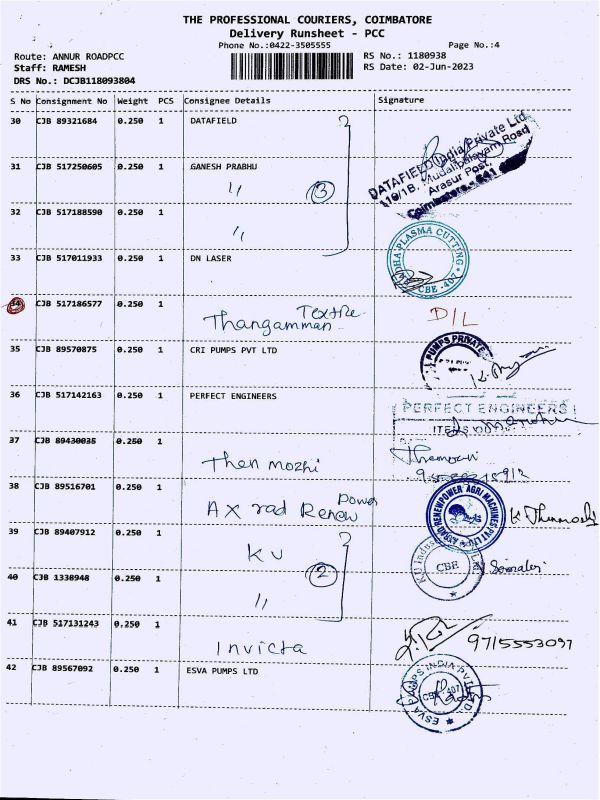 THE PROFESSIONAL COURIERS, COIMBATORE
Delivery Runsheet - PCC
Phone No.:0422-3505555 Page No.:4
Route: ANNUR ROADPCC RS No.: 1180938
Staff: RAMESH RS Date: 02-Jun-2023
DRS No.: DCJB118093804
S No Consignment No Weight PCS Consignee Details Signature
30 CJB 89321684 0.250 1 DATAFIELD
DATAFIELD India Private Ltd
119/1B, Mudalipalayam Road
Arasur Post,
Coimbatore - 641
31 CJB 517250605 0.250 1 GANESH PRABHU
〃 3
32 CJB 517188590 0.250 1
〃
33 CJB 517011933 0.250 1 DN LASER
PLASMA CUTTING
CBE - 407
34 CJB 517186577 0.250 1
Thangamman Textile D/L
35 CJB 89570875 0.250 1 CRI PUMPS PVT LTD
PUMPS PRIVATE
36 CJB 517142163 0.250 1 PERFECT ENGINEERS
PERFECT ENGINEERS
37 CJB 89430035 0.250 1
Then mozhi
38 CJB 89516701 0.250 1
AX rad Renew Power
RENEWPOWER AGRI MACHINES PVT
39 CJB 89407912 0.250 1
KU 2
CBE
40 CJB 1330948 0.250 1
〃
41 CJB 517131243 0.250 1
Invicta 9715553097
42 CJB 89567092 0.250 1 ESVA PUMPS LTD
ESVA PUMPS INDIA PVT LTD